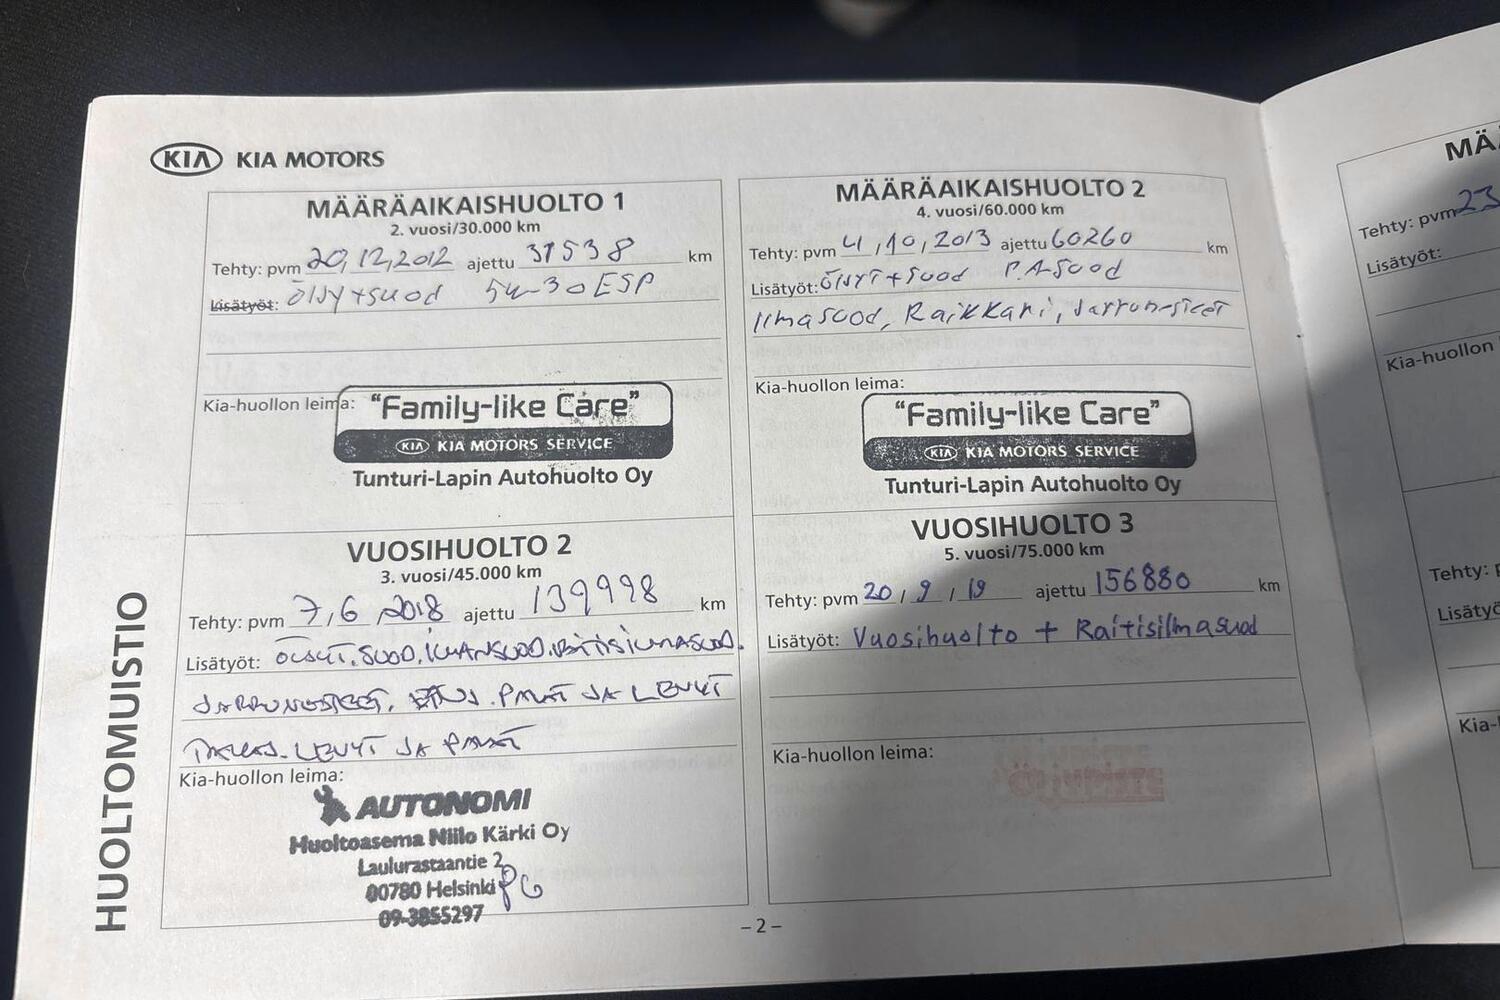 KIA KIA MOTORS
HUOLTOMUISTIO
MÄÄRÄAIKAISHUOLTO 1
2. vuosi/30.000 km
Tehty: pvm 20,12,2012 ajettu 31538 km
Lisätyöt: Öljyt+suod 5W-30 ESP
Kia-huollon leima:
"Family-like Care"
KIA KIA MOTORS SERVICE
Tunturi-Lapin Autohuolto Oy
MÄÄRÄAIKAISHUOLTO 2
4. vuosi/60.000 km
Tehty: pvm 4,10,2013 ajettu 60260 km
Lisätyöt: Öljyt+suod P.A-suod
Ilmasuod, Raikkari, Jarrun-steet
Kia-huollon leima:
"Family-like Care"
KIA KIA MOTORS SERVICE
Tunturi-Lapin Autohuolto Oy
VUOSIHUOLTO 2
3. vuosi/45.000 km
Tehty: pvm 7,6,2018 ajettu 139998 km
Lisätyöt: ÖLJYT. SUOD. ILMANSUOD.
JARRUNESTEET. ETUJ. PALAT JA LEVYT
TAKAJ. LEVYT JA PALAT
Kia-huollon leima:
AUTONOMI
Huoltoasema Niilo Kärki Oy
Laulurastaantie 2
00780 Helsinki
09-3855297
VUOSIHUOLTO 3
5. vuosi/75.000 km
Tehty: pvm 20, 9, 19 ajettu 156880 km
Lisätyöt: Vuosihuolto + Raitisilmasuod
Kia-huollon leima:
-2-
MÄÄ
Tehty: pvm 23
Lisätyöt:
Kia-huollon
Tehty: p
Lisätyö
Kia-h